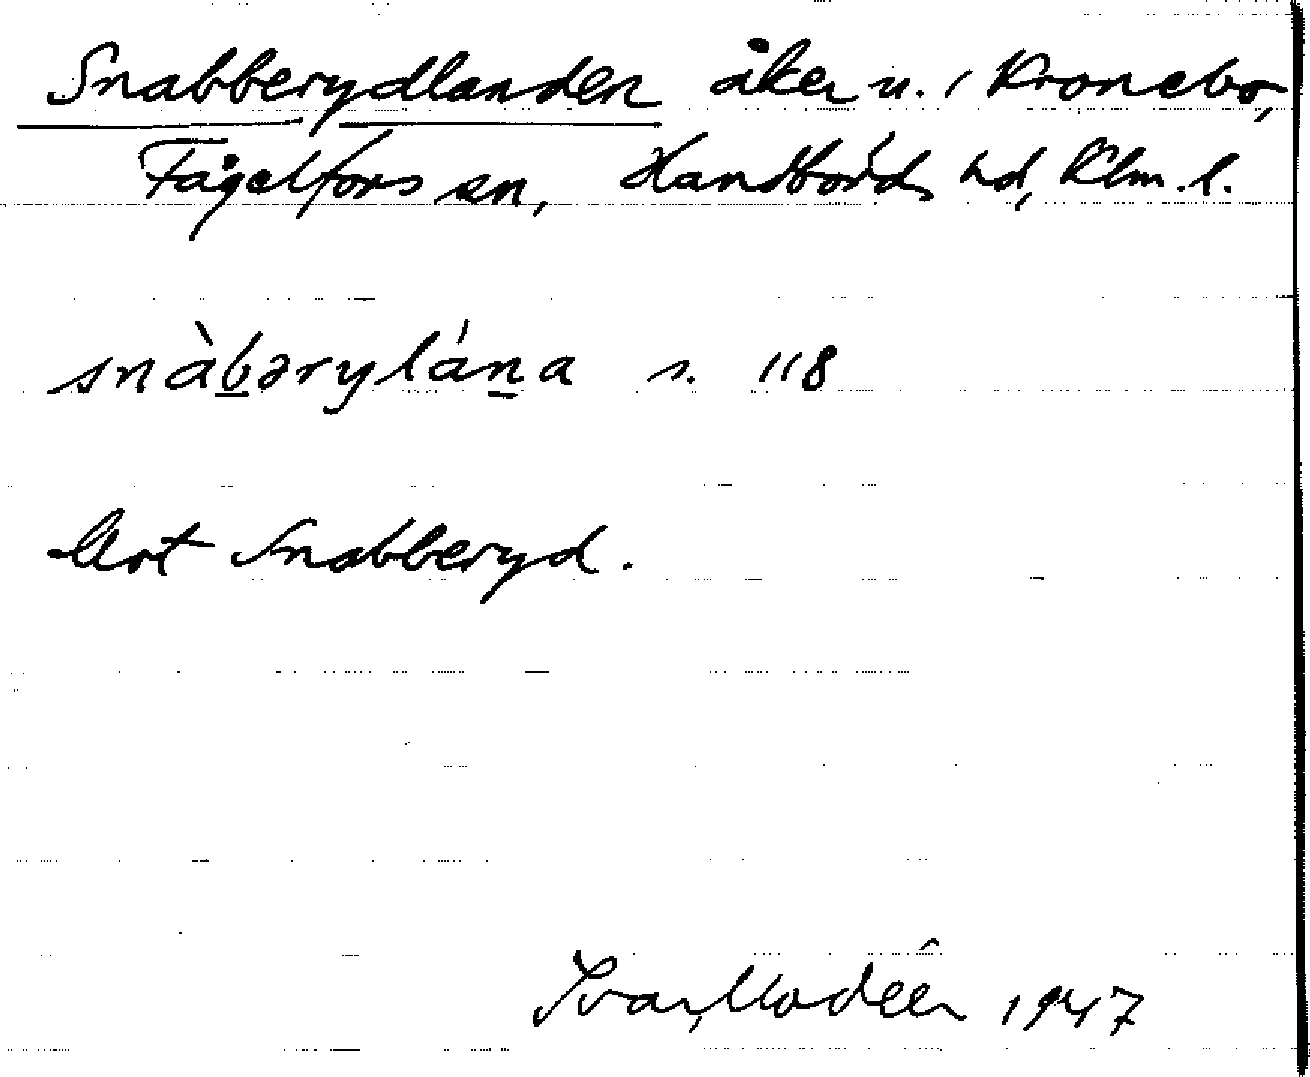 Snabberydlanden åker u. i Kronebo,
Fågelfors sn, Handbörds hd, Klm. l.
snàbərylána s. 118
Urt Snabberyd.
Ivar Modéer 1947